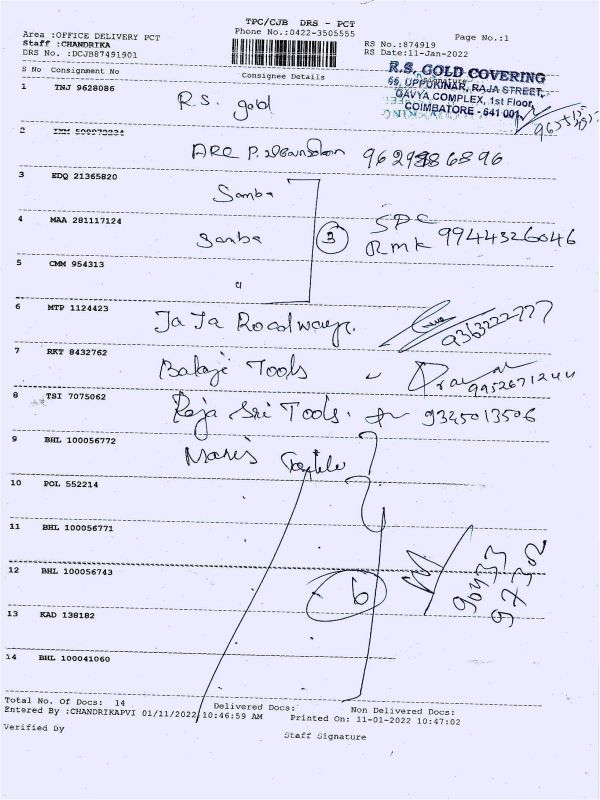 TPC/CJB DRS - PCT
Area :OFFICE DELIVERY PCT Phone No.:0422-3505555 Page No.:1
Staff :CHANDRIKA RS No.:874919
DRS No. :DCJB87491901 RS Date:11-Jan-2022
S No Consignment No Consignee Details Signature
R.S. GOLD COVERING
66, UPPUKINAR, RAJA STREET,
GAVYA COMPLEX, 1st Floor,
COIMBATORE - 641 001
1 TNJ 9628086 R.S. gold
2 ARC P.
3 EDQ 21365820 Samba
4 MAA 281117124 Samba 3 SPC
RMK 9944326046
5 CMM 954313 "
6 MTP 1124423 Ja Ja Roadways. 9363222777
7 RKT 8432762 Balaji Tools 9952671244
8 TSI 7075062 Raja Sri Tools. 9345013506
9 BHL 100056772 Maris Textile
10 POL 552214
11 BHL 100056771
12 BHL 100056743 6 90433
97302
13 KAD 138182
14 BHL 100041060
Total No. Of Docs: 14 Delivered Docs: Non Delivered Docs:
Entered By :CHANDRIKAPVI 01/11/2022 10:46:59 AM Printed On: 11-01-2022 10:47:02
Verified By Staff Signature